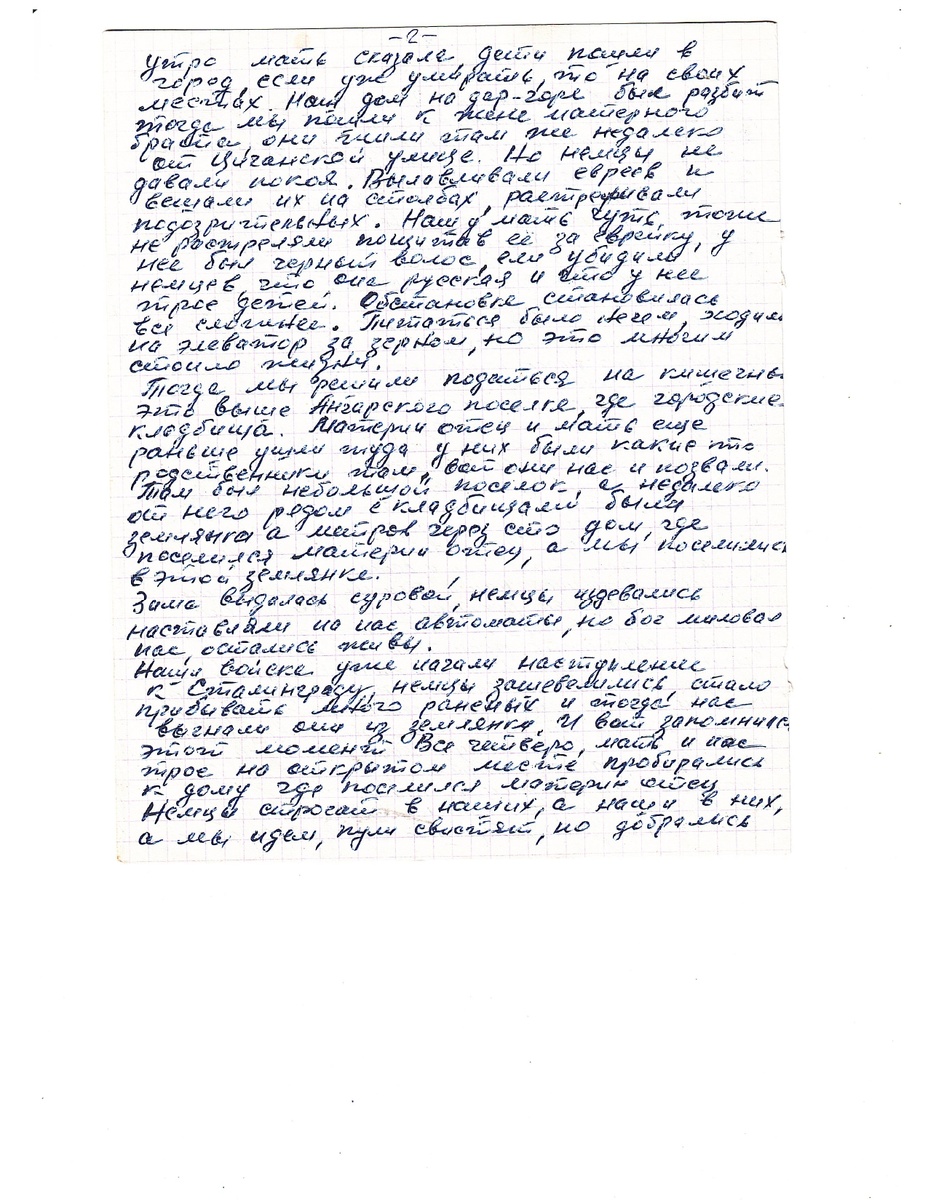 -2-
утро мать сказала, дети пошли в
город, если уже умирать, то на своих
местах. Наш дом на дар-горе был разбит
тогда мы пошли к жене матерного
брата, они жили там же недалеко
от Циганской улице. Но немцы не
давали покоя. Вылавливали евреев и
вешали их на столбах, растреливали
подозрительных. Нашу мать чуть тоже
не растреляли пощитав её за еврейку, у
нее был черный волос, ели убидила
немцев, что она русская и что у нее
трое детей. Обстановка становилась
все сложнее. Питаться было нечем, ходили
на элеватор за зерном, но это многим
стоило жизни.
Тогда мы решили податься на кишечны
это выше Ангарского поселка, где городские
кладбища. Материн отец и мать еще
раньше ушли туда у них были какие то
родственники там, вот они нас и позвали.
Там был небольшой поселок, а недалеко
от него рядом с кладбищами была
землянка а метров через сто дом, где
поселился материн отец, а мы поселились
в этой землянке.
Зима выдалась суровой, немцы издевались
наставляли на нас автоматы, но бог миловал
нас, остались живы.
Наши войска уже начали наступление
к Сталинграду, немцы зашевелились, стало
прибывать много раненых и тогда нас
выгнали они из землянки. И вот запомнился
этот момент Все четверо, мать и нас
трое на открытом месте пробирались
к дому где поселился материн отец
Немцы стросат в наших, а наши в них,
а мы идем, пули свистят, но добрались